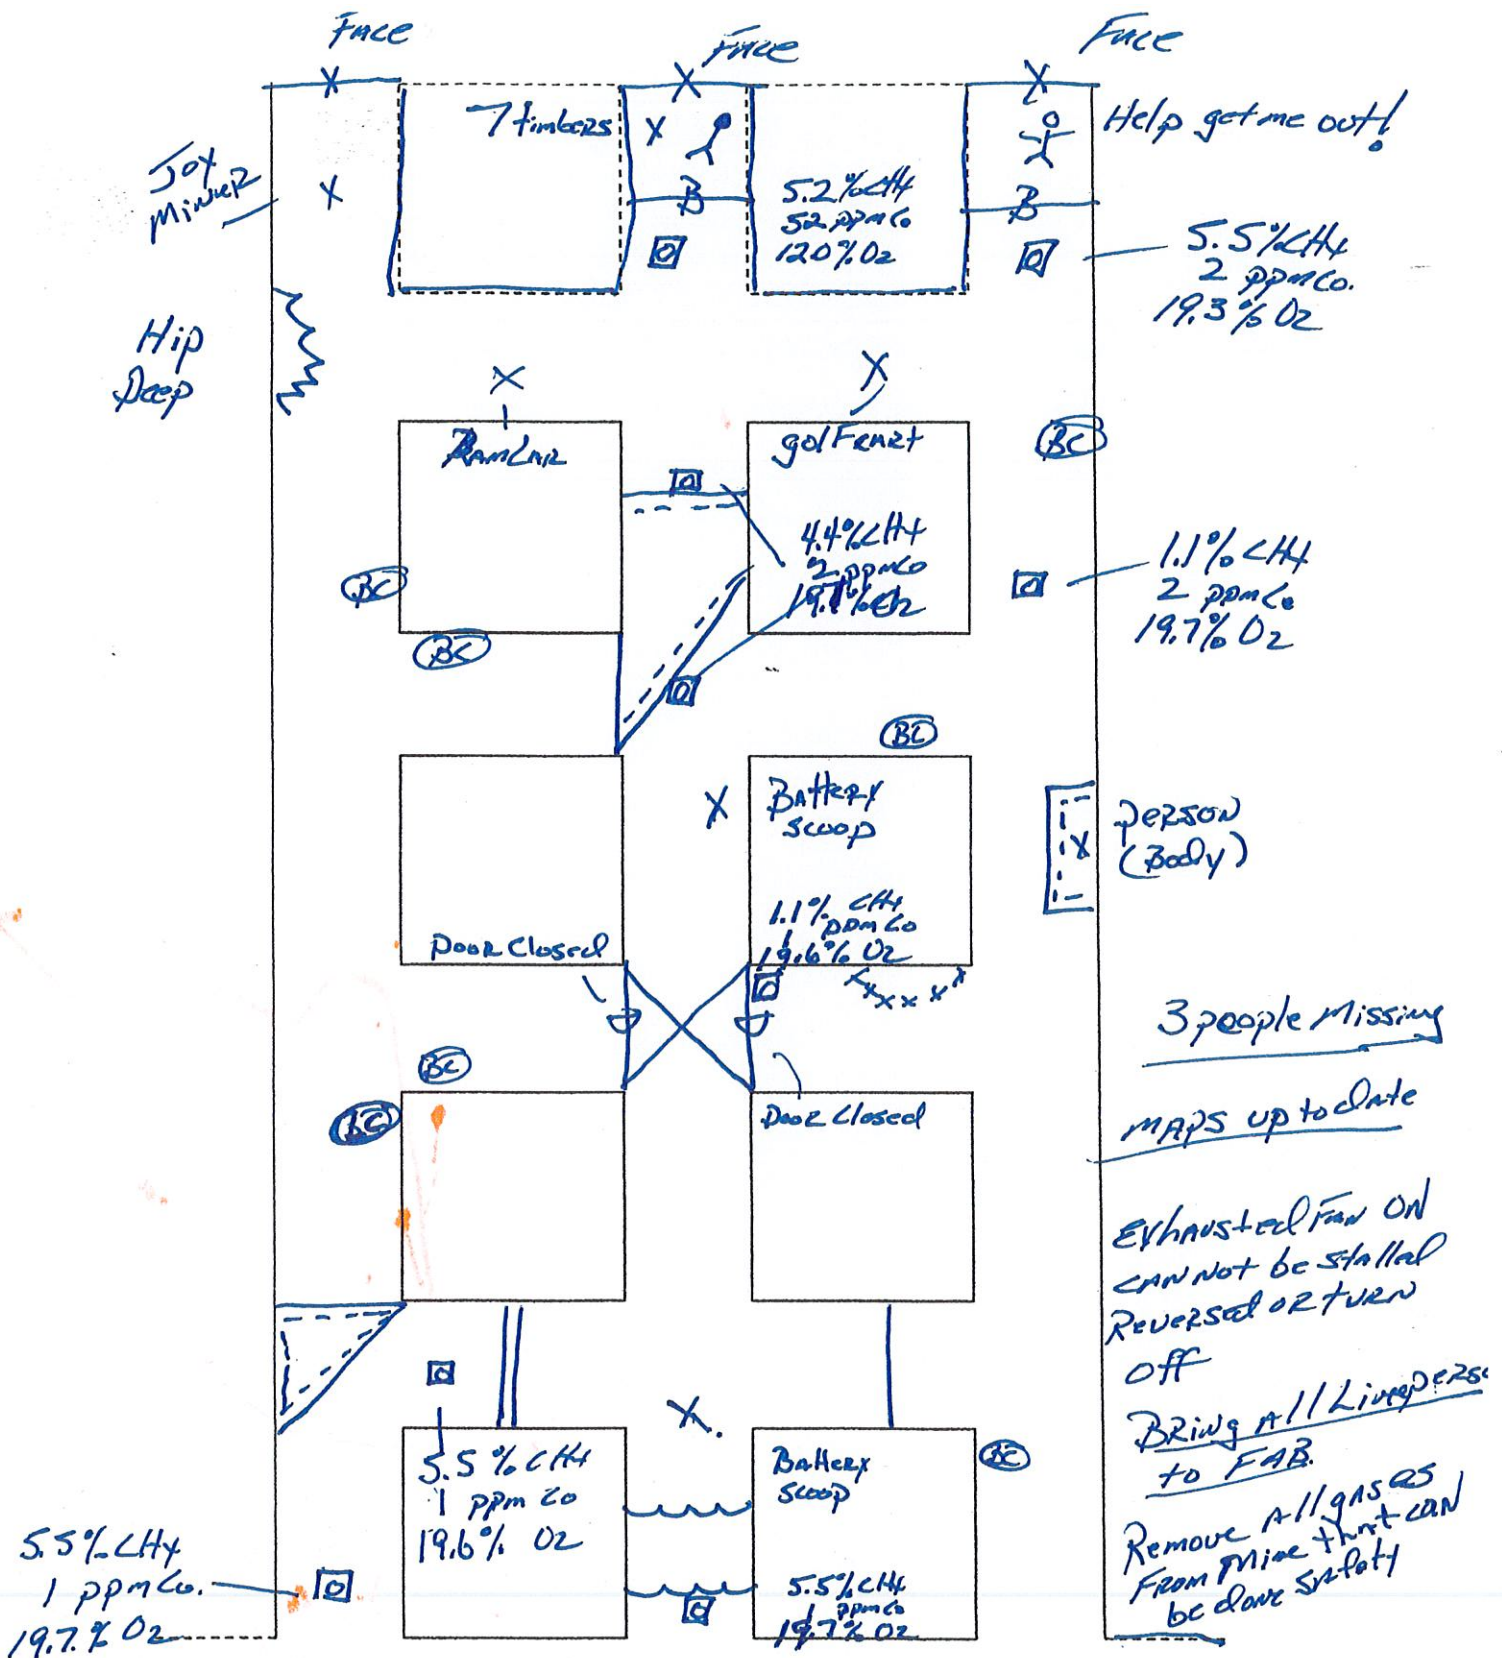 Face
Face
Face
X
X
X
7 timbers
X
Help get me out!
Joy
Miner
X
B
B
5.2% CH4
52 ppm Co
12.0% O2
5.5% CH4
2 ppm Co.
19.3% O2
Hip
Deep
X
X
Ram Car
golf Kart
BC
4.4% CH4
2 ppm Co
BC
1.1% CH4
2 ppm Co
19.7% O2
BC
BC
X
Battery
scoop
X
person
(Body)
1.1% CH4
1 ppm Co
19.6% O2
Door Closed
x x x x x x
3 people Missing
BC
BC
Door Closed
MAPS up to date
Exhausted Fan ON
CAN Not be stalled
Reversed OR turn
off
X.
Bring All Live perso
to FAB.
5.5% CH4
1 ppm Co
19.6% O2
Battery
scoop
BC
Remove All gas as
From Mine that can
be done safety
5.5% CH4
1 ppm Co.
19.7% O2
5.5% CH4
1 ppm Co
19.7% O2